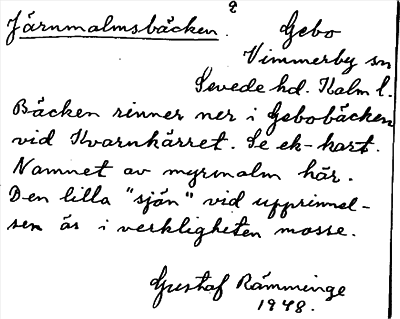 Järnmalmsbäcken. Gebo
Vimmerby sn
Sevede hd. Kalm l.
Bäcken rinner ner i Gebobäcken
vid Kvarnkärret. Se ek-kart.
Namnet av myrmalm här.
Den lilla "sjön" vid upprinnel-
sen är i verkligheten mosse.
Gustaf Rämminge
1948.